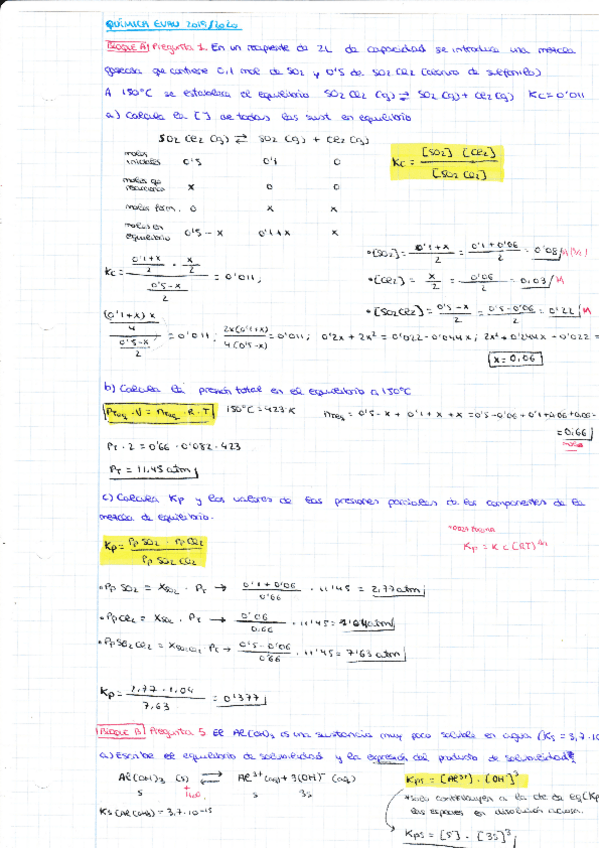 QUÍMICA EVAU 2019/2020
BLOQUE A Pregunta 1. En un recipiente de 2L de capacidad se introduce una mezcla
gaseosa que contiene 0,1 mol de SO2 y 0'5 de SO2Cl2 (cloruro de sulfonilo)
A 150°C se establece el equilibrio SO2Cl2 (g) ⇌ SO2 (g) + Cl2 (g) Kc = 0'011
a) Calcula la [ ] de todas las sust en equilibrio
SO2Cl2 (g) ⇌ SO2 (g) + Cl2 (g)
moles iniciales 0'5 0'1 0
Kc = [SO2] [Cl2] / [SO2Cl2]
moles que reaccionan x 0 0
moles form. 0 x x
moles en equilibrio 0'5 - x 0'1 + x x
• [SO2] = 0'1 + x / 2 = 0'1 + 0'06 / 2 = 0'08 M
Kc = 0'1 + x / 2 · x / 2 / 0'5 - x / 2 = 0'011;
• [Cl2] = x / 2 = 0'06 / 2 = 0,03 M
• [SO2Cl2] = 0'5 - x / 2 = 0'5 - 0'06 / 2 = 0'22 M
(0'1 + x) x / 4 / 0'5 - x / 2 = 0'011; 2x(0'1 + x) / 4(0'5 - x) = 0'011; 0'2x + 2x² = 0'022 - 0'044x; 2x² + 0'244x - 0'022 =
x = 0,06
b) Calcula la presión total en el equilibrio a 150°C
PTeq · V = nTeq · R · T 150°C = 423 K nTeq = 0'5 - x + 0'1 + x + x = 0'5 - 0'06 + 0'1 + 0,06 + 0,06 =
= 0,66 moles
PT · 2 = 0'66 · 0'082 · 423
PT = 11,45 atm
c) Calcula Kp y los valores de las presiones parciales de los componentes de la
mezcla de equilibrio.
Kp = Pp SO2 · Pp Cl2 / Pp SO2Cl2
*otra forma
Kp = Kc (RT)^Δn
• Pp SO2 = XSO2 · PT → 0'1 + 0'06 / 0'66 · 11'45 = 2,77 atm;
• Pp Cl2 = XSO2 · PT → 0'06 / 0,66 · 11'45 = 1'04 atm
• Pp SO2Cl2 = XSO2Cl2 · PT → 0'5 - 0'06 / 0'66 · 11'45 = 7'63 atm
Kp = 2,77 · 1,04 / 7,63 = 0'377
BLOQUE B Pregunta 5 El Al(OH)3 es una sustancia muy poco soluble en agua (Ks = 3,7·10
a) Escribe el equilibrio de solubilidad y la expresión del producto de solubilidad
Al(OH)3 (s) ⇌ Al³⁺ (aq) + 3(OH)⁻ (aq)
Kps = [Al³⁺] · [OH]³
s +H2O s 3s
*solo contribuyen a la cte de eq (Kp
las especies en disolución acuosa.
Ks (Al(OH)3) = 3,7·10⁻¹⁵
Kps = [s] · [3s]³